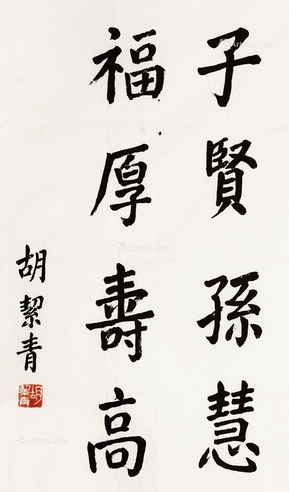 子賢孫慧
福厚壽高
胡絜青